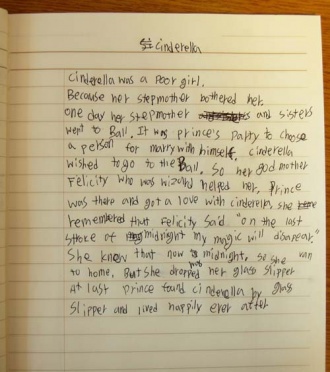 Cinderella
Cinderella was a poor girl.
Because her stepmother bothered her.
one day her stepmother and sisters
went to Ball. It was prince's party to choose
a person for marry with himself. cinderella
wished to go to the Ball. So her godmother
Felicity who was wizard helped her. Prince
was there and got a love with cinderella, she
remembered that Felicity said "on the last
stroke of midnight my magic will disapear."
She know that now is midnight, so she ran
to home, But she dropped her glass slipper
At last prince found cinderella by glass
slipper and lived happily ever after